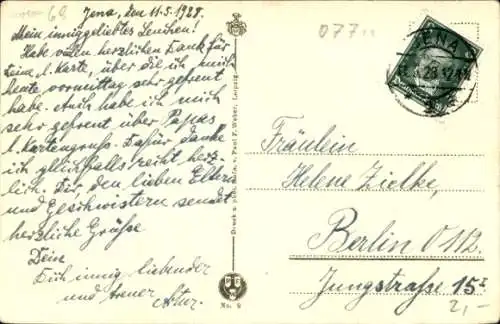 Jena, den 11.5.1928.
Mein inniggeliebtes Lenchen!
Habe vielen herzlichen Dank für
Deine l. Karte, über die ich mich
heute vormittag sehr gefreut
habe. Auch habe ich mich
sehr gefreut über Papas
l. Kartengruss. Dafür danke
ich gleichfalls recht herz-
lich. Für den lieben Eltern
und Geschwistern sendet
herzliche Grüße
Dein
Dich innig liebender
und treuer
077
JENA
Druck u. Paul F. Weber, Leipzig
No. 9
Fräulein
Helene Zielke,
Berlin O 112.
Jungstraße 15 I
2,-